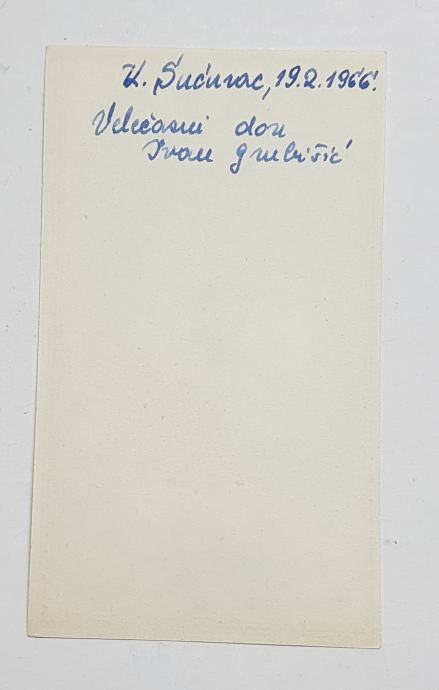 K. Sućurac, 19.2.1966.
Velečasni don
Ivan Grubišić